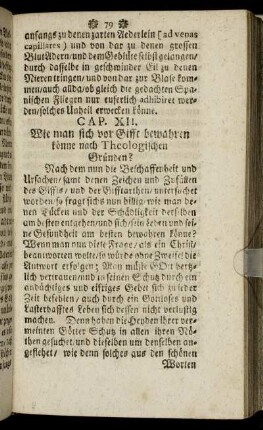 79
anfangs zu denen zarten Aederlein (ad venas
capillares) und von dar zu denen grossen
BlutAdern/und dem Geblüte selbst gelangen/
durch dasselbe in geschwinder Eil zu denen
Nieren tringen/und von dar zur Blase kom-
men/auch allda/ob gleich die gedachten Spa-
nischen Fliegen nur euserlich adhibiret wer-
den/solches Unheil erwecken könne.
CAP. XII.
Wie man sich vor Gifft bewahren
könne nach Theologischen
Gründen?
Nach dem nun die Beschaffenheit und
Ursachen/samt denen Zeichen und Zufällen
des Giffts/und der Gifftarthen/untersuchet
worden/so fragt sichs nun billig/wie man de-
nen Tücken und der Schädligkeit derselben
am besten entgehen/und sich/sein Leben und sei-
ne Gesundheit am besten bewahren könne?
Wenn man nun diese Frage/als ein Christ/
beantworten wolte/so würde ohne Zweifel die
Antwort erfolgen; Man müste GOtt hertz-
lich vertrauen/und in seinen Schutz durch ein
andächtiges und eifriges Gebet sich zu jeder
Zeit befehlen/auch durch ein Gottloses und
Lasterhafftes Leben sich dessen nicht verlustig
machen. Denn haben die Heyden ihrer ver-
meinten Götter Schutz in allen ihren Nö-
then gesuchet/und dieselben um denselben an-
geflehet/wie denn solches aus den schönen
Worten